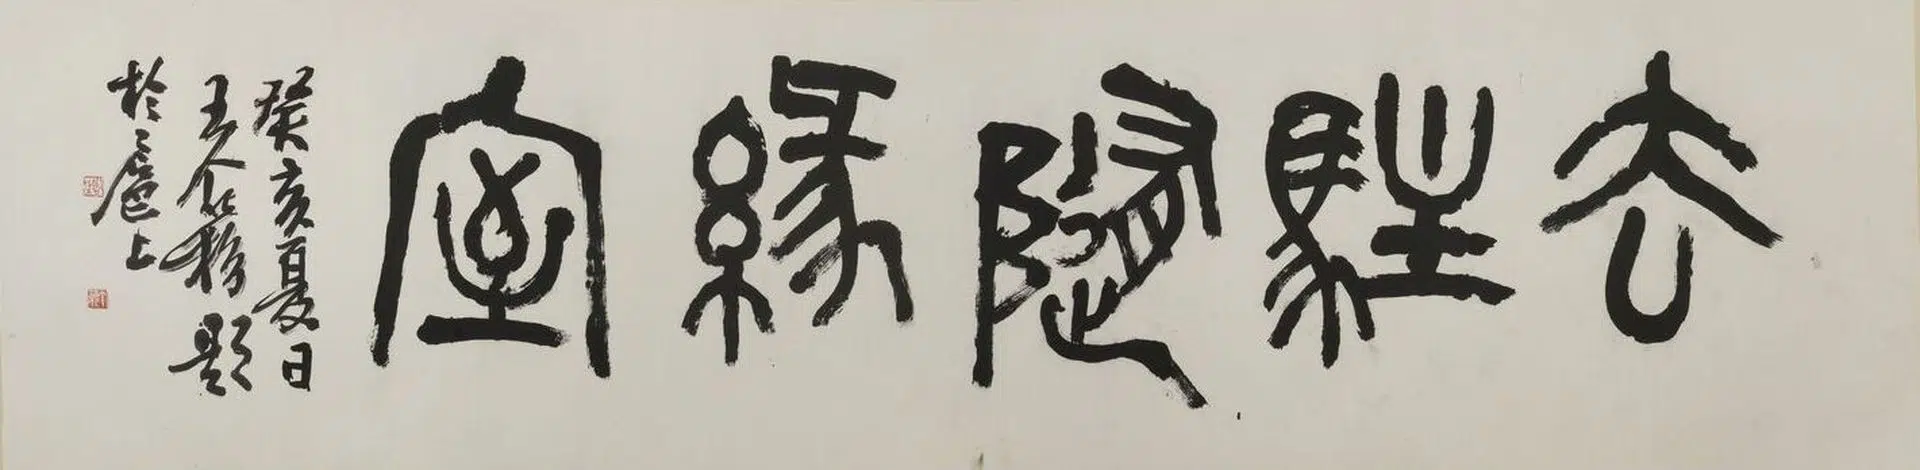 去駐隨緣室
癸亥夏日
王个簃題
於滬上